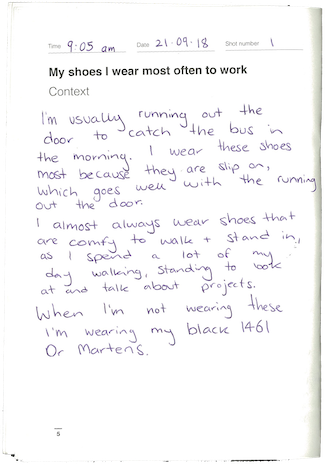 Time 9:05 am Date 21·09·18 Shot number 1
My shoes I wear most often to work
Context
I'm usually running out the
door to catch the bus in
the morning. I wear these shoes
most because they are slip on,
which goes well with the running
out the door.
I almost always wear shoes that
are comfy to walk + stand in,
as I spend a lot of my
day walking, standing to look
at and talk about projects.
When I'm not wearing these
I'm wearing my black 1461
Dr Martens.
5